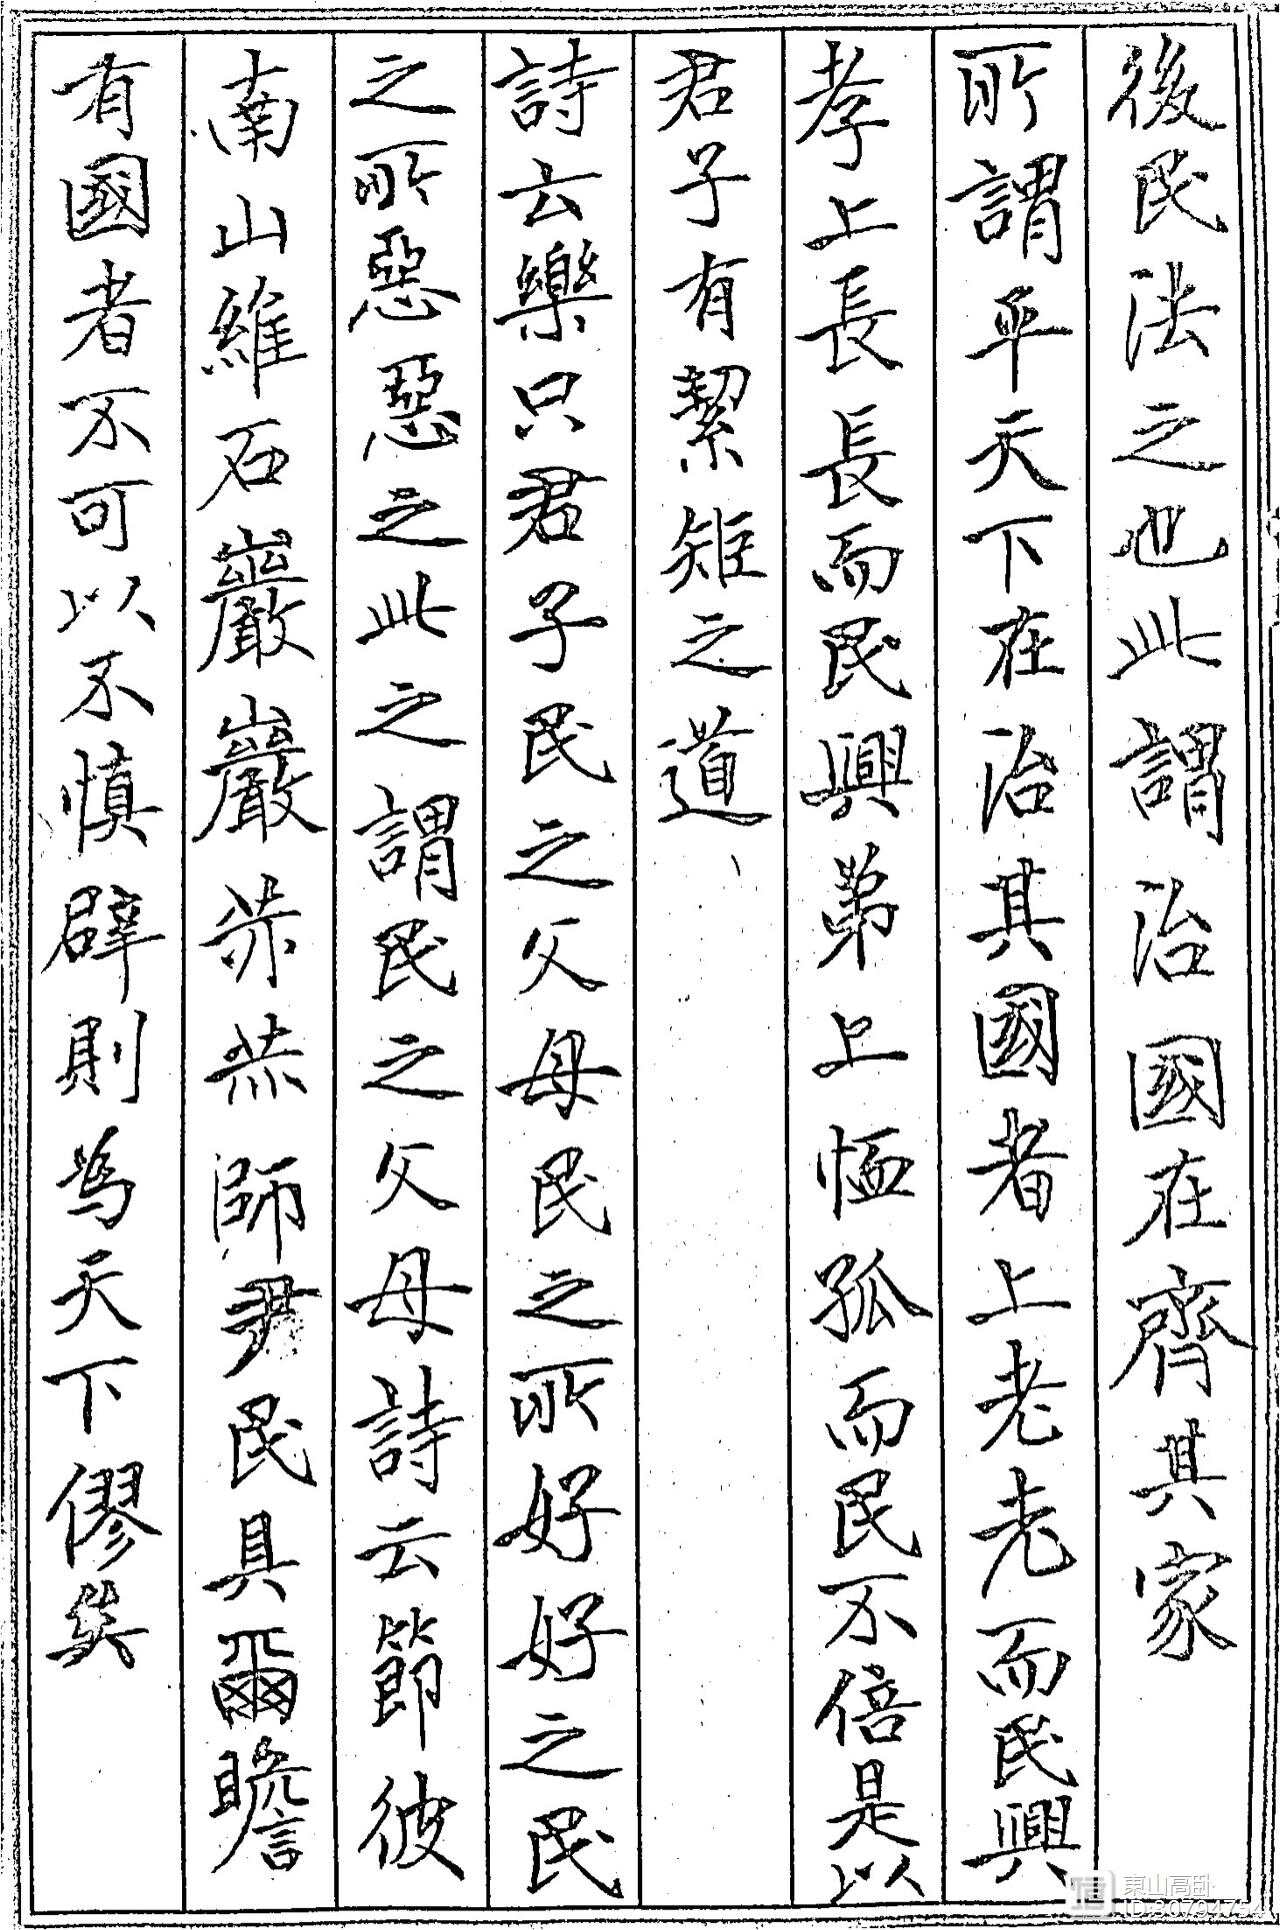 後民法之也此謂治國在齊其家
所謂平天下在治其國者上老老而民興
孝上長長而民興弟上恤孤而民不倍是以
君子有絜矩之道
詩云樂只君子民之父母民之所好好之民
之所惡惡之此之謂民之父母詩云節彼
南山維石巖巖赫赫師尹民具爾瞻
有國者不可以不慎辟則為天下僇矣
東山高臥